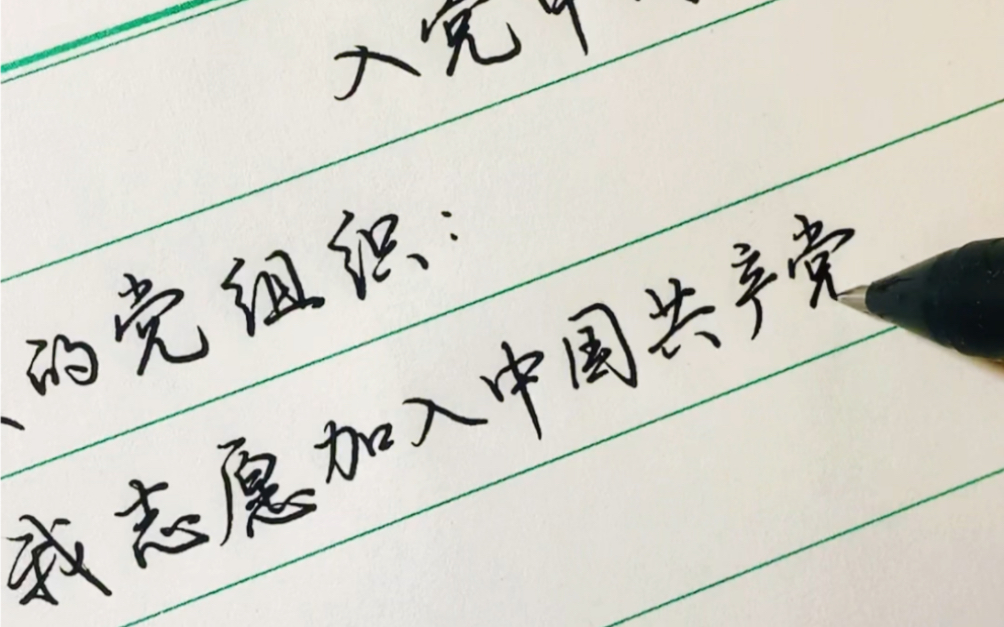 入党申
的党组织：
我志愿加入中国共产党